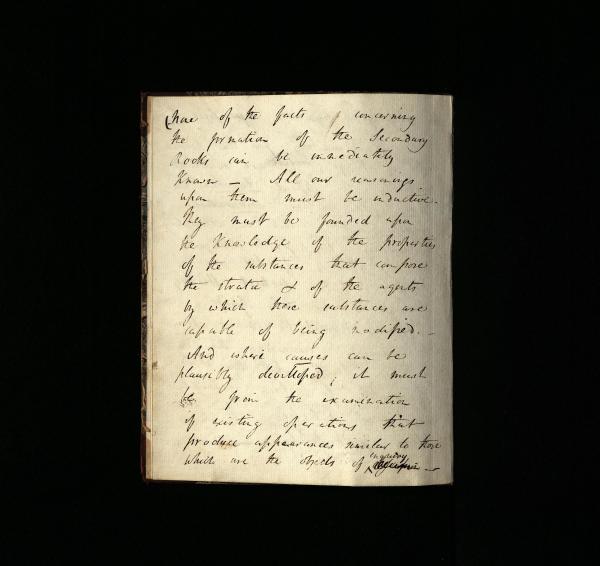 None of the facts concerning
the formation of the Secondary
Rocks can be immediately
Known — All our reasonings
upon them must be inductive -
They must be founded upon
the Knowledge of the properties
of the substances that compose
the strata & of the agents
by which these substances are
capable of being modified. -
And where causes can be
plausibly developed; it must
be from the examination
of existing operations that
produce appearances similar to those
which are the objects of enquiry —